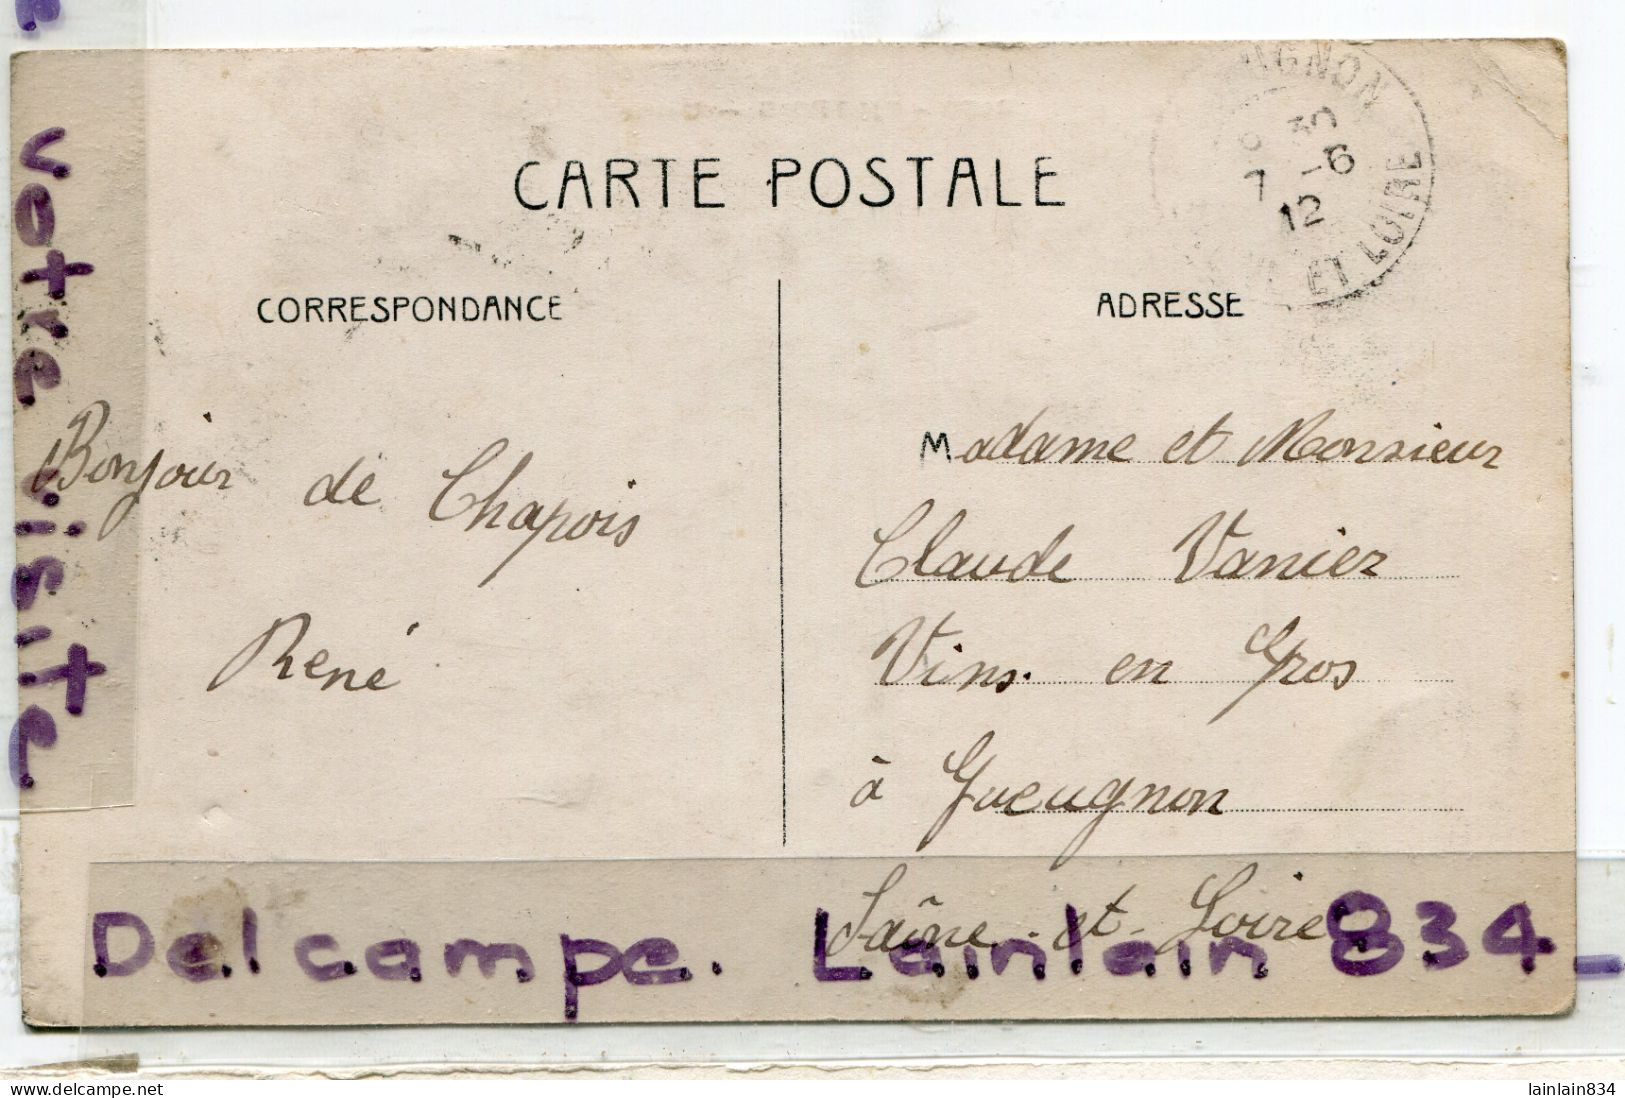 CARTE POSTALE
UGNON
30
7 -6
12
ET LOIRE
CORRESPONDANCE
ADRESSE
Bonjour de Chapois
René
Madame et Monsieur
Claude Vanier
Vins en Gros
à Gueugnon
Saône-et-Loire
votre visite
Delcampe. Lainlain 834_
www.delcampe.net
lainlain834